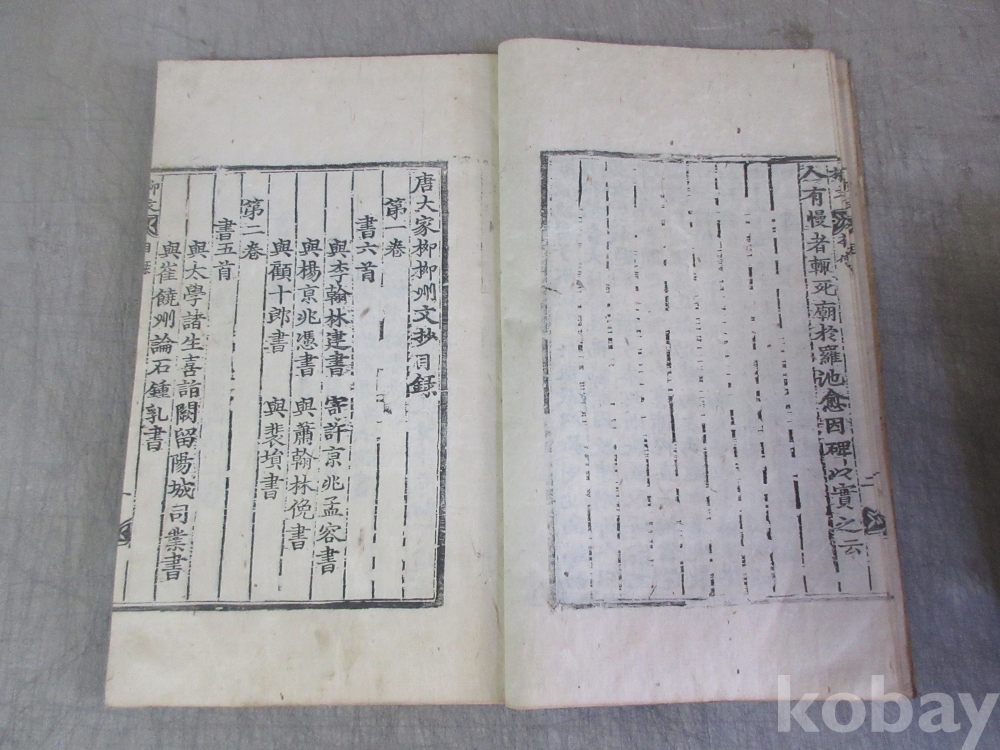 人有慢者輒死廟於羅池愈因碑以實之云
唐大家柳柳州文抄目錄
第一卷
書六首
與李翰林建書 寄許京兆孟容書
與楊京兆憑書 與蕭翰林俛書
與顧十郎書 與裴塤書
第二卷
書五首
與太學諸生喜詣闕留陽城司業書
與崔饒州論石鍾乳書
kobay